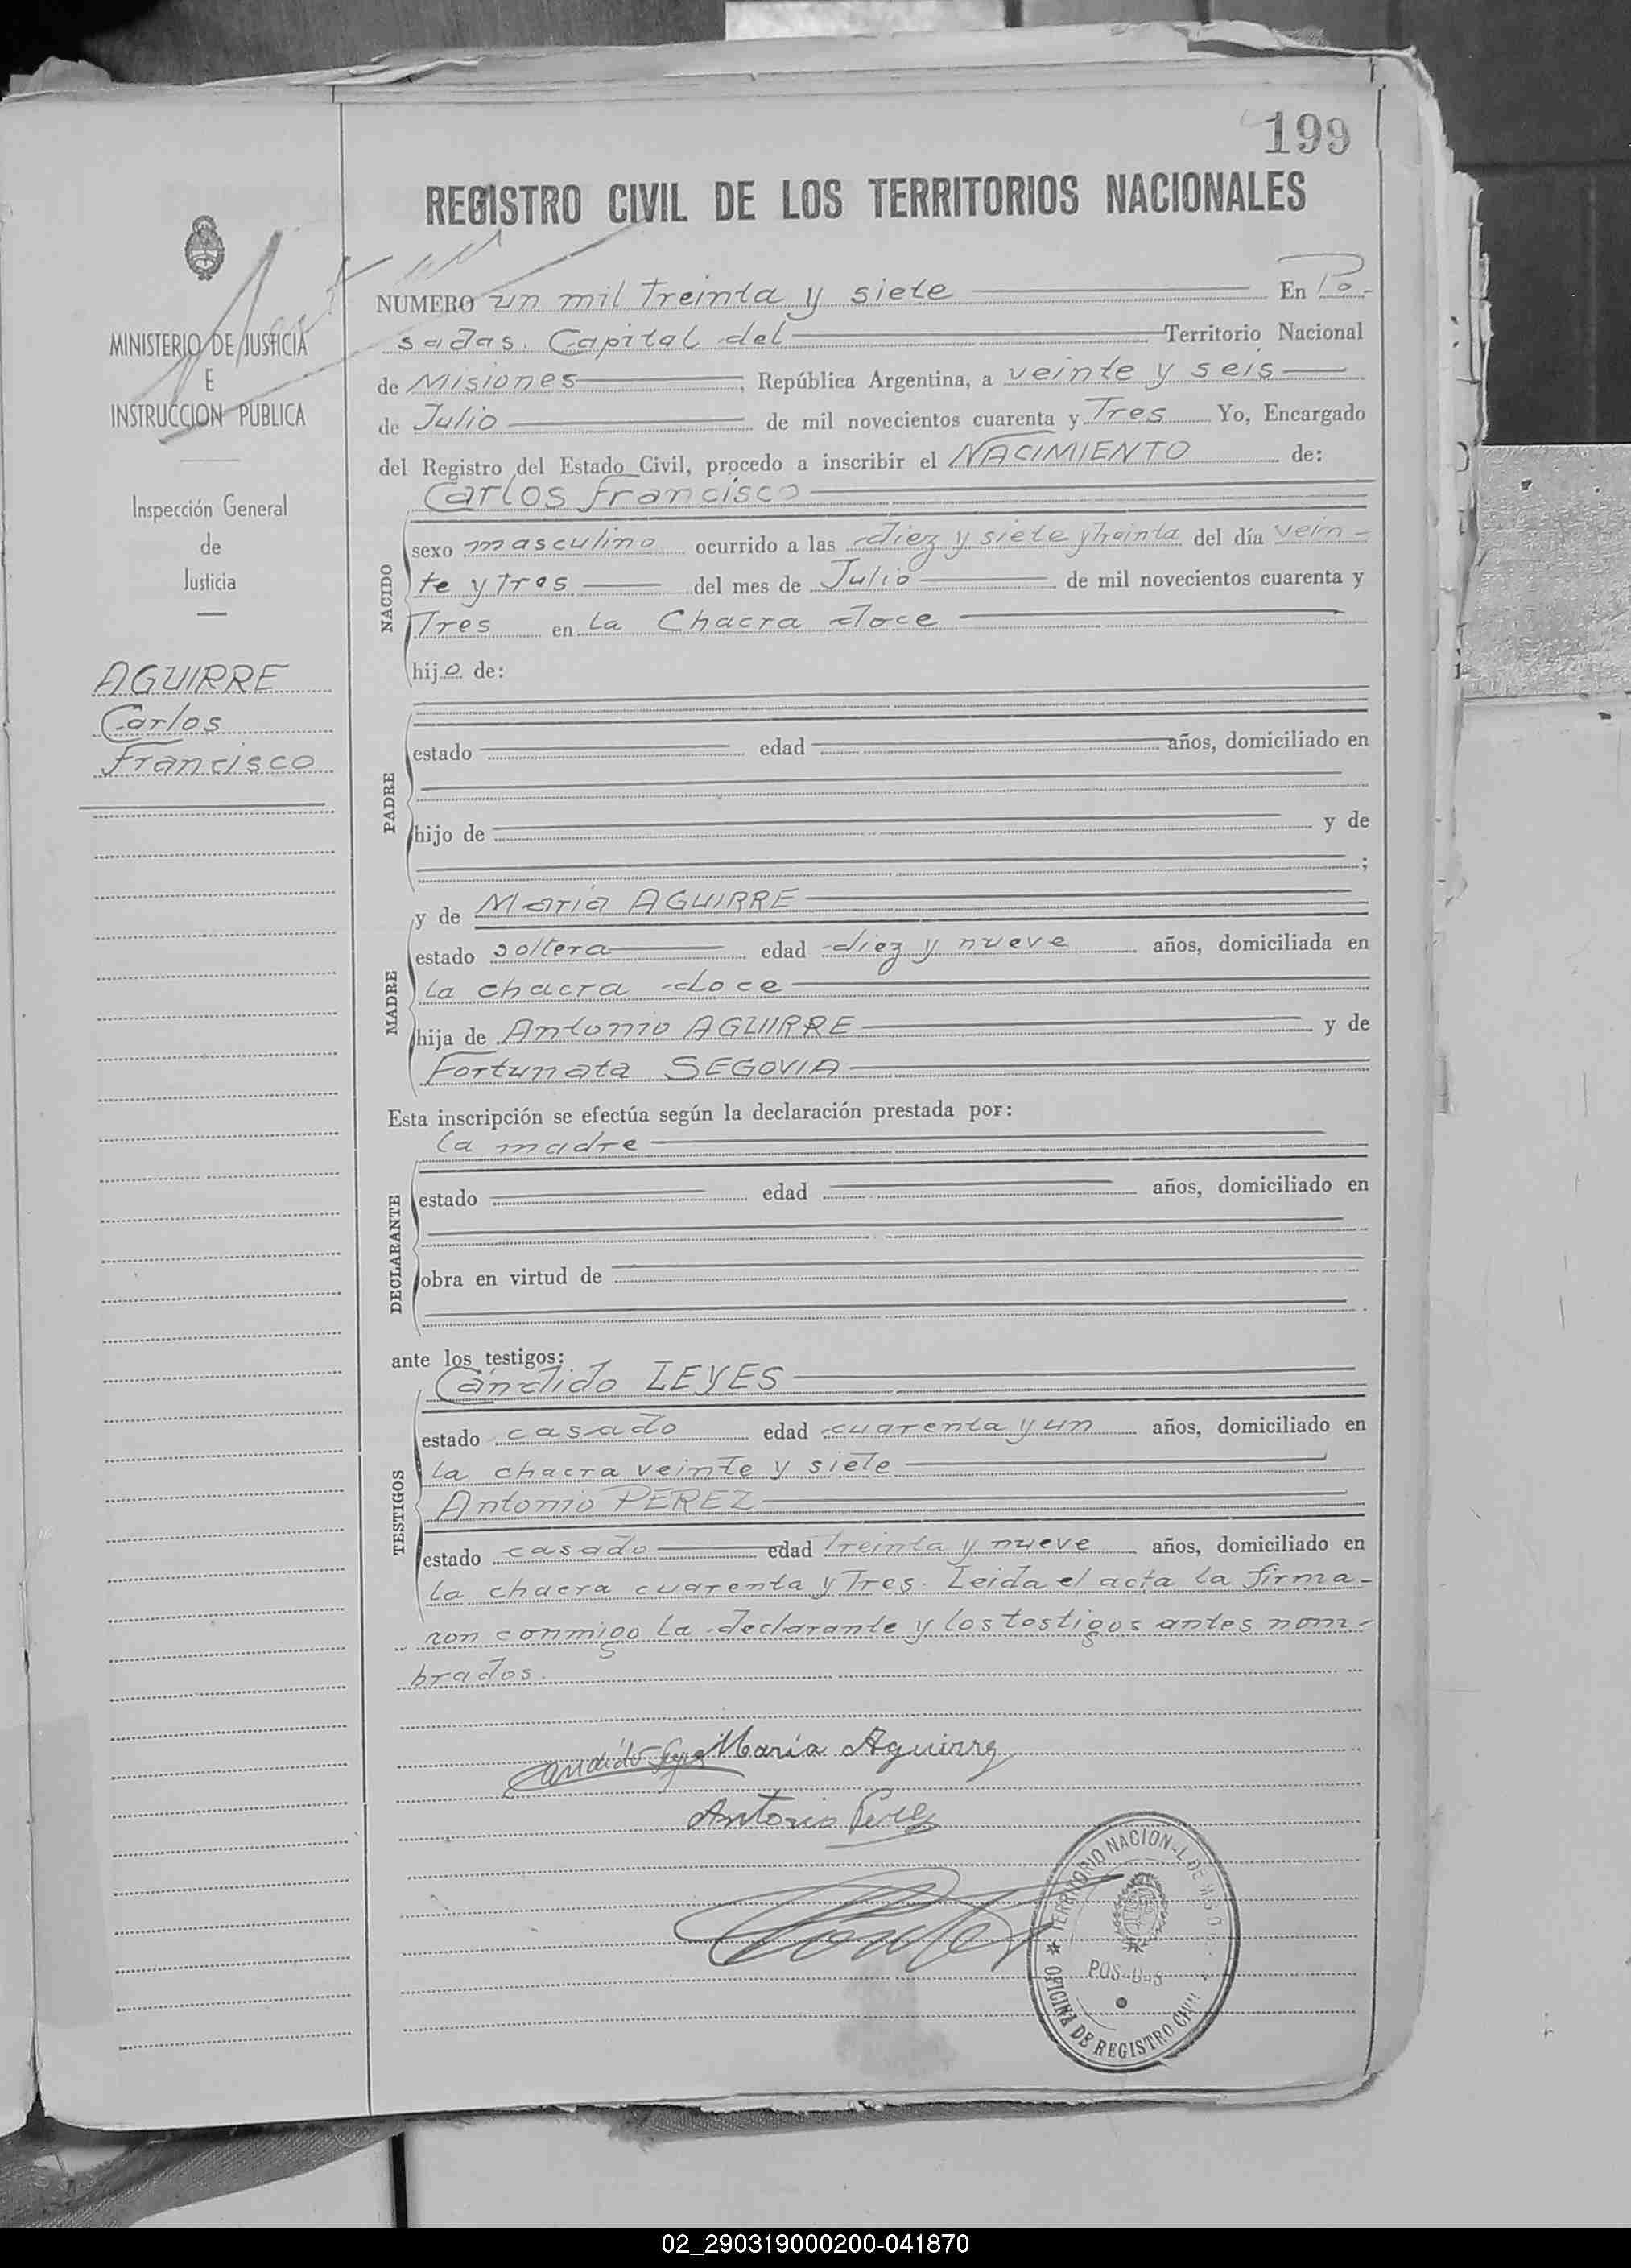 199
REGISTRO CIVIL DE LOS TERRITORIOS NACIONALES
MINISTERIO DE JUSTICIA
E
INSTRUCCION PUBLICA
Inspección General
de
Justicia
AGUIRRE
Carlos
Francisco
NUMERO un mil treinta y siete En Po-
sadas. Capital del Territorio Nacional
de Misiones, República Argentina, a veinte y seis
de Julio de mil novecientos cuarenta y Tres Yo, Encargado
del Registro del Estado Civil, procedo a inscribir el NACIMIENTO de:
NACIDO
Carlos Francisco
sexo masculino ocurrido a las diez y siete y treinta del día vein-
te y tres del mes de Julio de mil novecientos cuarenta y
Tres en La Chacra doce
hijo de:
PADRE
estado edad años, domiciliado en
hijo de y de
;
MADRE
y de Maria AGUIRRE
estado soltera edad diez y nueve años, domiciliada en
la chacra doce
hija de Antonio AGUIRRE y de
Fortunata SEGOVIA
Esta inscripción se efectúa según la declaración prestada por:
la madre
DECLARANTE
estado edad años, domiciliado en
obra en virtud de
ante los testigos:
TESTIGOS
Cándido LEYES
estado casado edad cuarenta y un años, domiciliado en
la chacra veinte y siete
Antonio PEREZ
estado casado edad treinta y nueve años, domiciliado en
la chacra cuarenta y Tres. Leida el acta la firma-
ron conmigo la declarante y los testigos antes nom-
brados.
Candido Leyes María Aguirre
Antonio Perez
TERRITORIO NACIONAL DE
POSADAS
OFICINA DE REGISTRO CIVIL
02_290319000200-041870